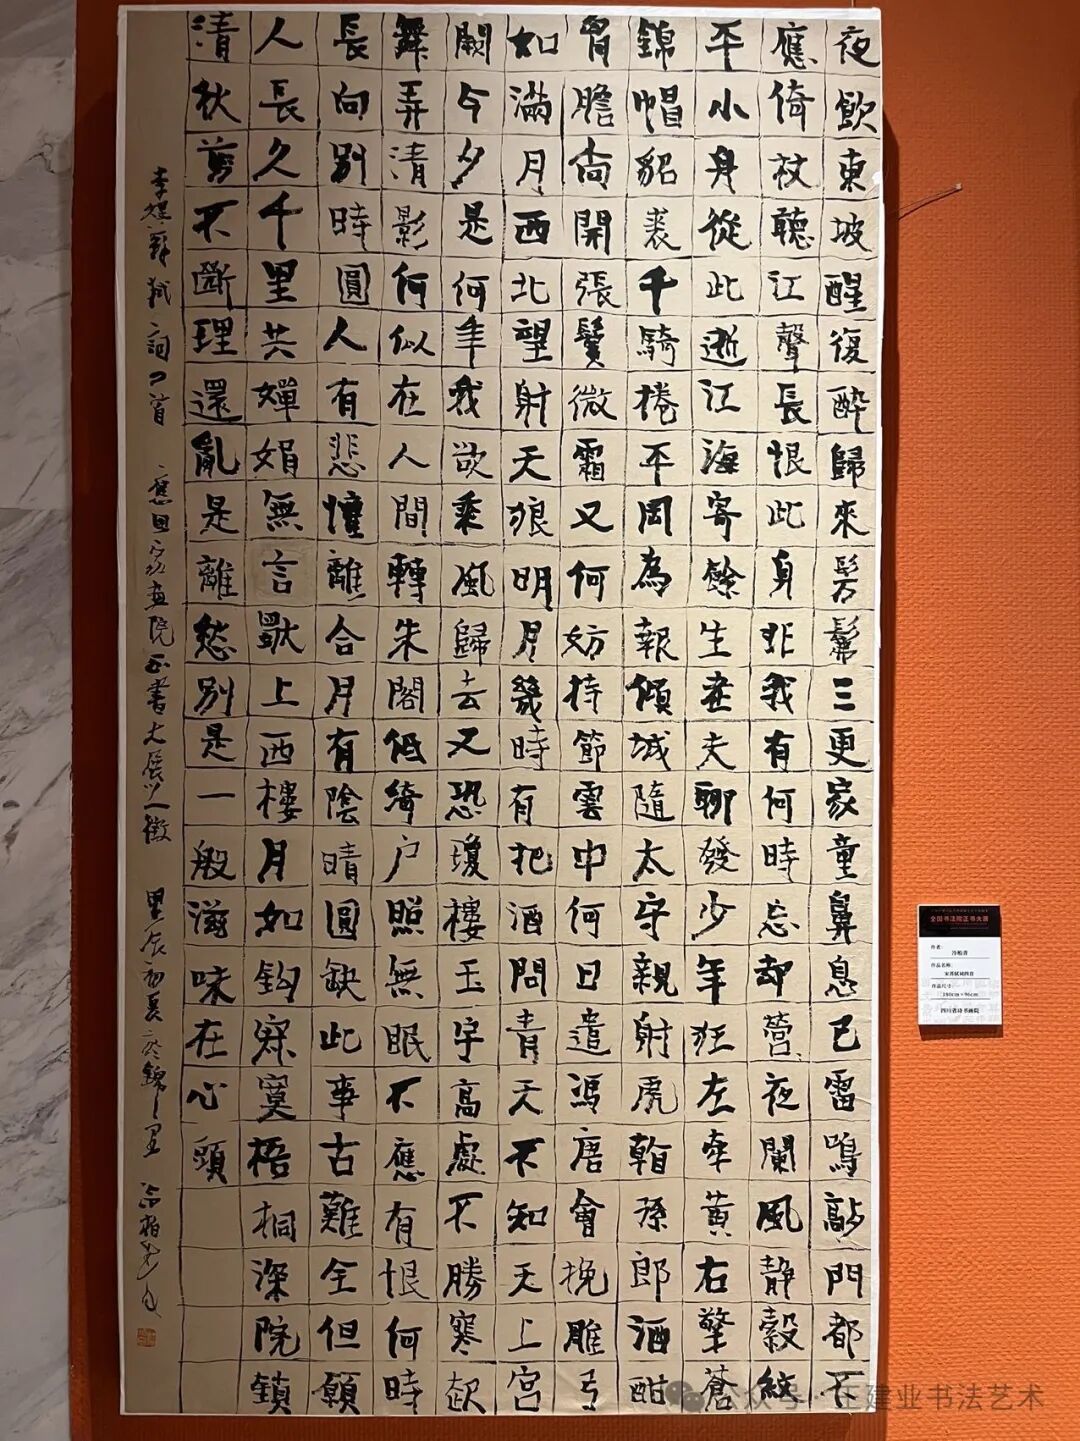 夜飲東坡醒復醉歸來髣髴三更家童鼻息已雷鳴敲門都不
應倚杖聽江聲長恨此身非我有何時忘却營夜闌風静縠紋
平小舟從此逝江海寄餘生老夫聊發少年狂左牽黃右擎蒼
錦帽貂裘千騎捲平岡為報傾城隨太守親射虎看孫郎酒酣
胷膽尚開張鬢微霜又何妨持節雲中何日遣馮唐會挽雕弓
如滿月西北望射天狼明月幾時有把酒問青天不知天上宮
闕今夕是何年我欲乘風歸去又恐瓊樓玉宇高處不勝寒起
舞弄清影何似在人間轉朱閣低綺户照無眠不應有恨何時
長向別時圓人有悲懽離合月有陰晴圓缺此事古難全但願
人長久千里共嬋娟無言獨上西樓月如鈎寂寞梧桐深院鎖
清秋剪不斷理還亂是離愁別是一般滋味在心頭
李煜蘇軾詞四首 畫院正書大展之徵 甲辰初夏於錦里 冷柏青
全国书法院正书大展
作者:
冷柏青
作品名称:
宋苏轼词四首
作品尺寸:
180cm×96cm
四川省诗书画院
公众号·王建业书法艺术